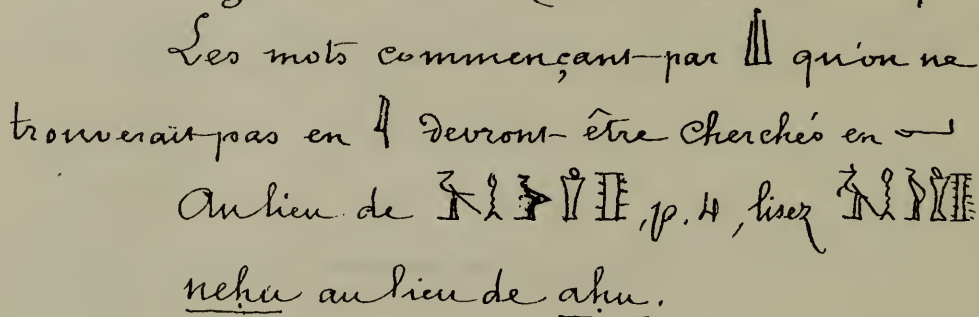 Les mots commençant par qu'on ne
trouverait pas en 𓇋 devront être cherchés en 𓂝
Au lieu de , p. 4, lisez
neḥu au lieu de aḥu.